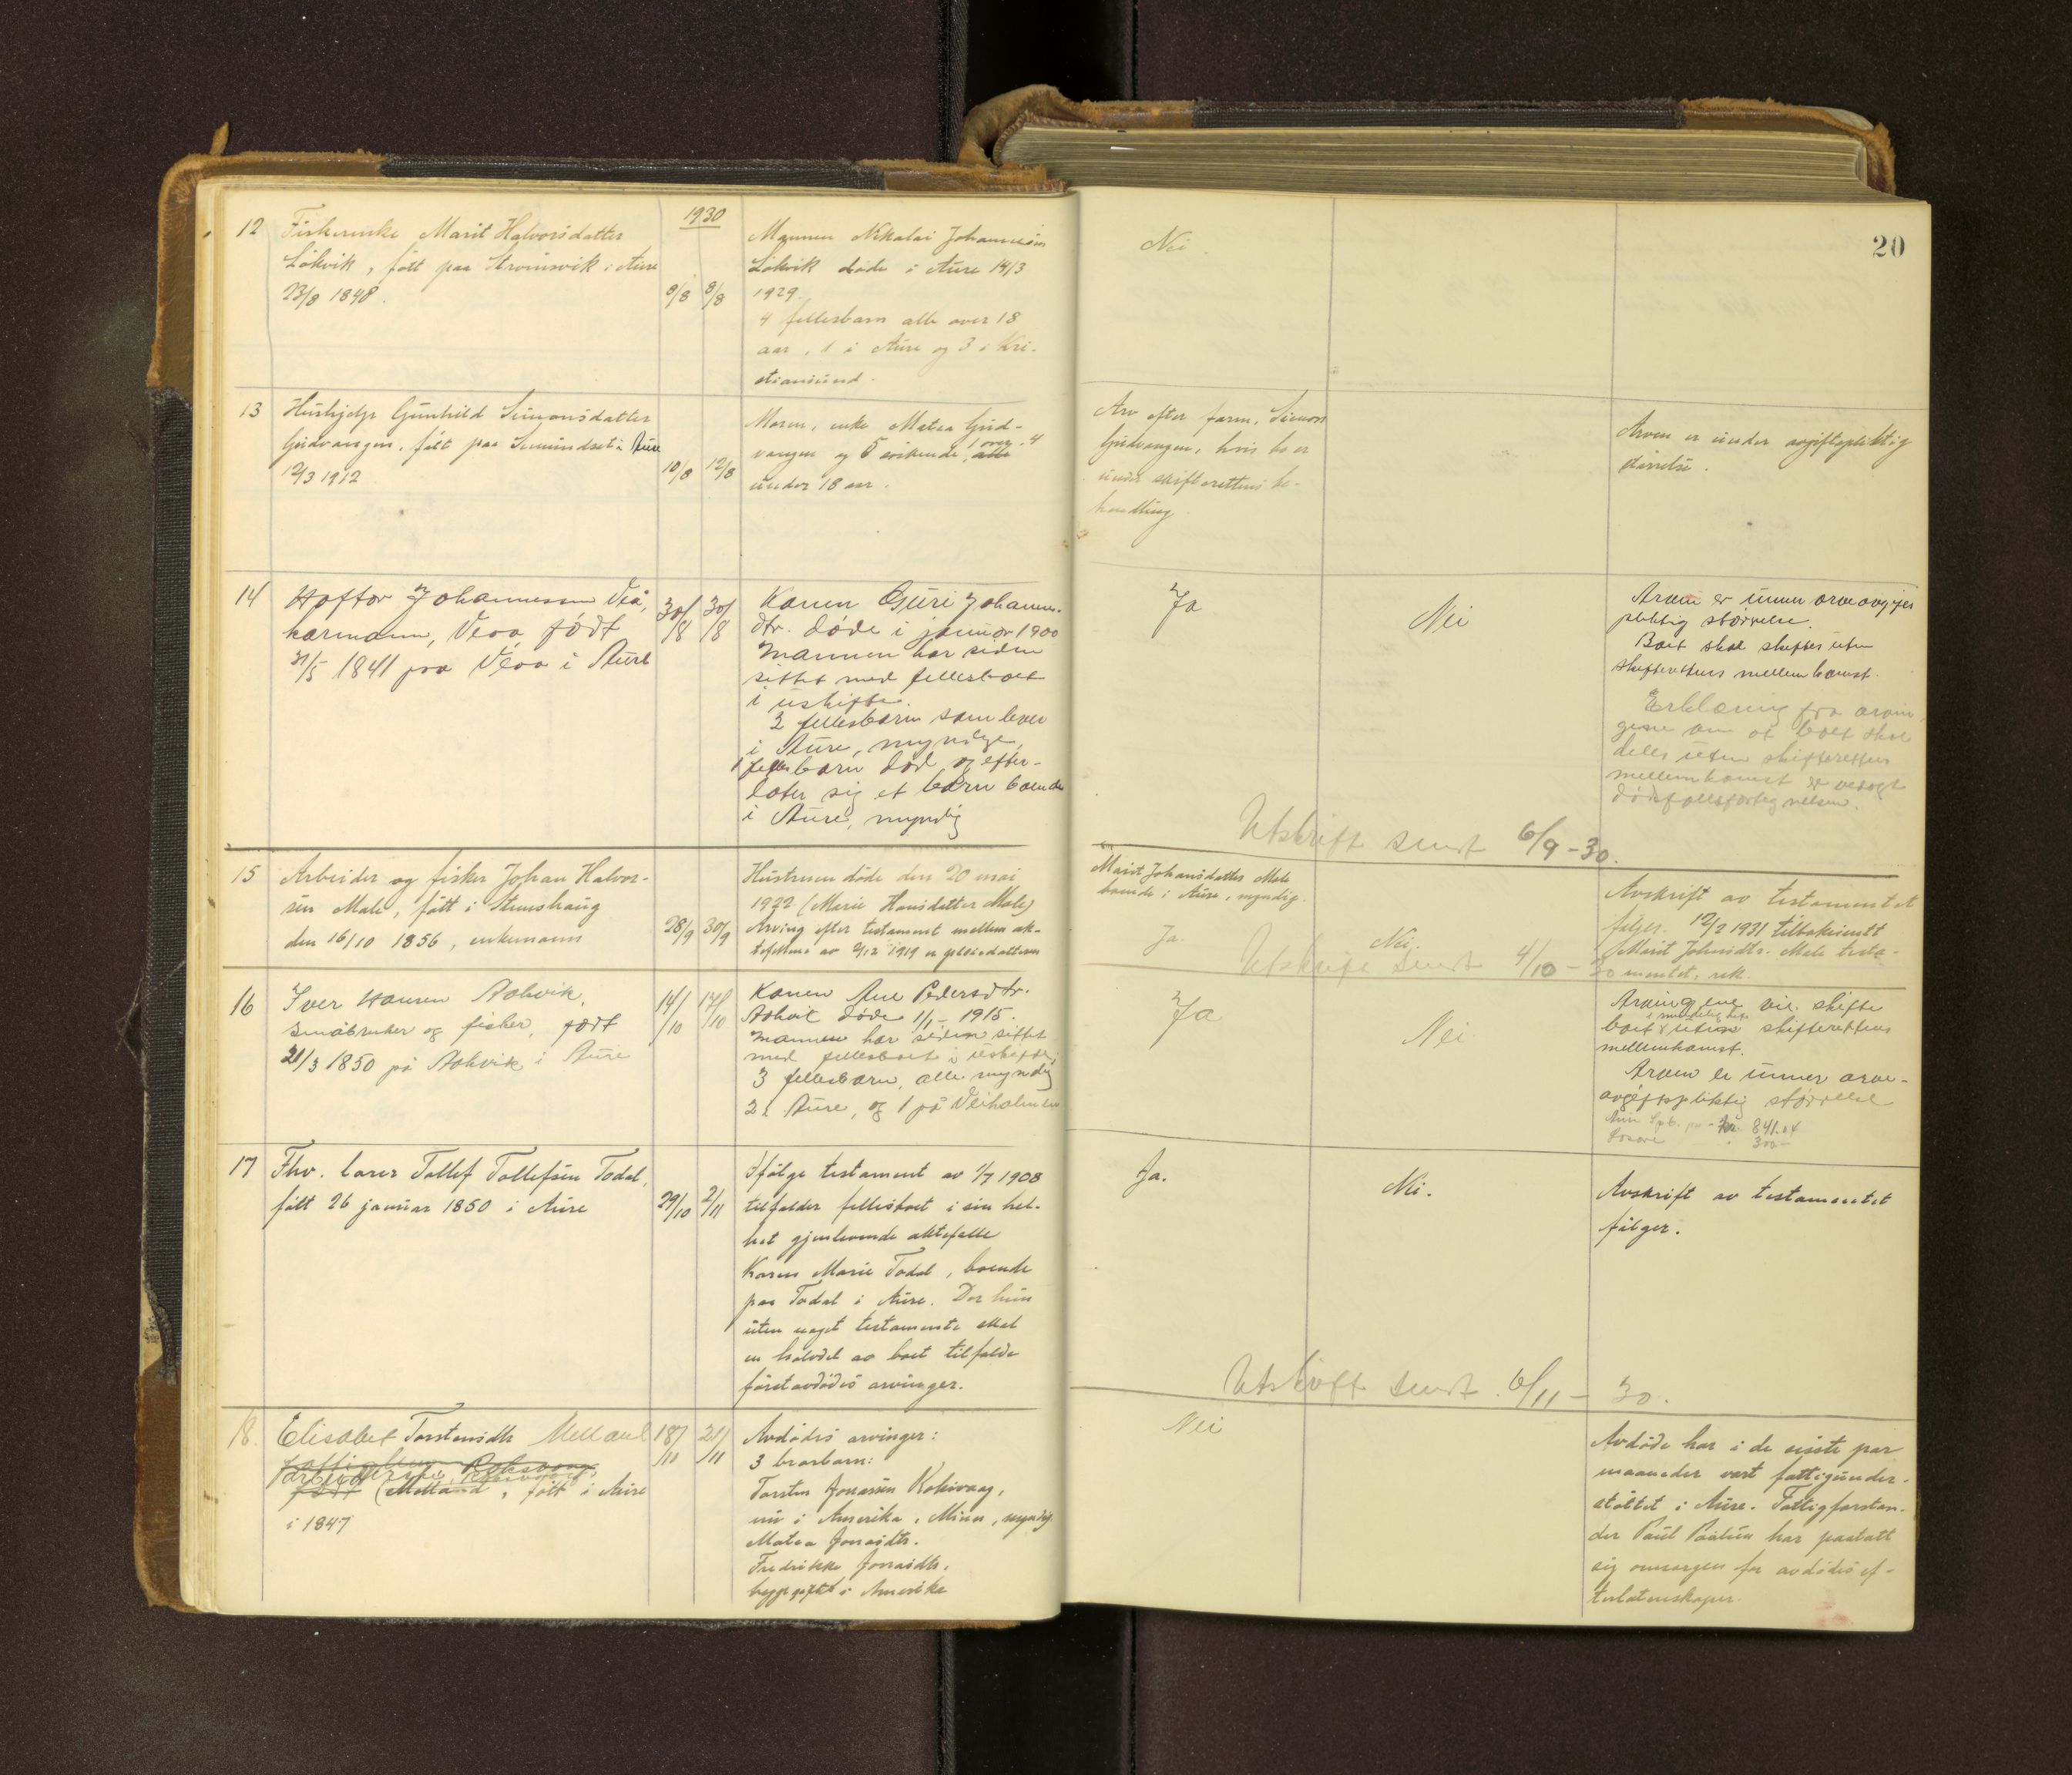 1930
20
12 Fiskerenke Marit Halvorsdatter
Lökvik, født paa Strömsvik i Aure
23/8 1848.
8/8 8/8
Mannen Nikolai Johannesen
Lökvik døde i Aure 14/3
1929.
4 fellesbarn alle over 18
aar, 1 i Aure og 3 i Kri-
stiansund.
Nei.
13 Hushjelp Gunhild Simonsdatter
født paa Semundset i Aure
12/3 1912
10/8 12/8
Moren, enke Matea Gjød-
vangen og 5 søskende, 1 over, 4
under 18 aar.
Arv efter faren, Simon
hvis bo er
under skifterettens be-
handling.
Arven er under avgiftspliktig
størrelse.
14 Hoftor Johannessen Veå,
kårmann, Veaa, født
31/5 1841 paa Veaa i Aure
30/8 30/8
Konen Guri Johanns-
dtr. døde i januar 1900
Mannen har siden
sittet med fellesboet
i uskifte.
3 fellesbarn som lever
i Aure, myndige,
1 fellesbarn død og efter-
later sig et barn boende
i Aure, myndig
Ja
Nei
Arven er under arveavgifts
pliktig størrelse.
Boet skal skiftes uten
skifterettens mellemkomst.
Erklæring fra arvin
gene om at boet skal
deles uten skifterettens
mellemkomst er vedlagt
dødsfallsfortegnelsen.
Utskrift sendt 6/9-30.
15 Arbeider og fisker Johan Halvor-
sen Mele, født i Stemshaug
den 16/10 1856, enkemann
28/9 30/9
Hustruen døde den 20 mai
1922 (Marie Hansdatter Mele)
Arving efter testament mellem ek-
tefellene av 2/12 1919 er pleiedatteren
Marit Johansdatter Mele
boende i Aure, myndig.
Ja.
Nei.
Avskrift av testamentet
følger. 12/2 1931 tilbakesendt
Marit Johansdtr. Mele testa-
mentet, rek.
Utskrift sendt 4/10-30
16 Iver Hansen Aakvik,
småbruker og fisker, født
21/3 1850 på Aakvik i Aure
14/10 17/10
Konen Ane Pedersdtr.
Aakvik døde 1/1- 1915.
Mannen har siden sittet
med fellesboet i uskifte,
3 fellesbarn, alle myndig
2 i Aure, og 1 på Veiholmen
Ja
Nei
Arvingene vil skifte
boet i mindelighet uten skifterettens
mellemkomst.
Arven er under arve-
avgiftspliktig størrelse
841.04
300-
17 Fhv. lærer Tollef Tollefsen Todal,
født 26 januar 1850 i Aure
29/10 2/11
Ifølge testament av 1/7 1908
tilfalder fellesboet i sin hel-
het gjenlevende ektefelle
Karen Marie Todal, boende
paa Todal i Aure. Dør hun
uten noget testamente skal
en halvdel av boet tilfalde
førstavdødes arvinger.
Ja.
Nei.
Avskrift av testamentet
følger.
Utskrift sendt 6/11-30.
18. Elisabet Torstensdtr Melland
(Melland, født i Aure
i 1847
18/11 21/11
Avdødes arvinger:
3 brorbarn:
Torsten Jonassen Roksvaag,
nu i Amerika, Minn, myndig
Matea Jonasdtr.
Fredrikke Jonasdtr.
begge gifte i Amerika
Nei
Avdøde har i de sisste par
maaneder vært fattigunder-
støttet i Aure. Fattigforstan-
der Paul Paulsen har paatatt
sig omsorgen for avdødes ef-
terlatenskaper.